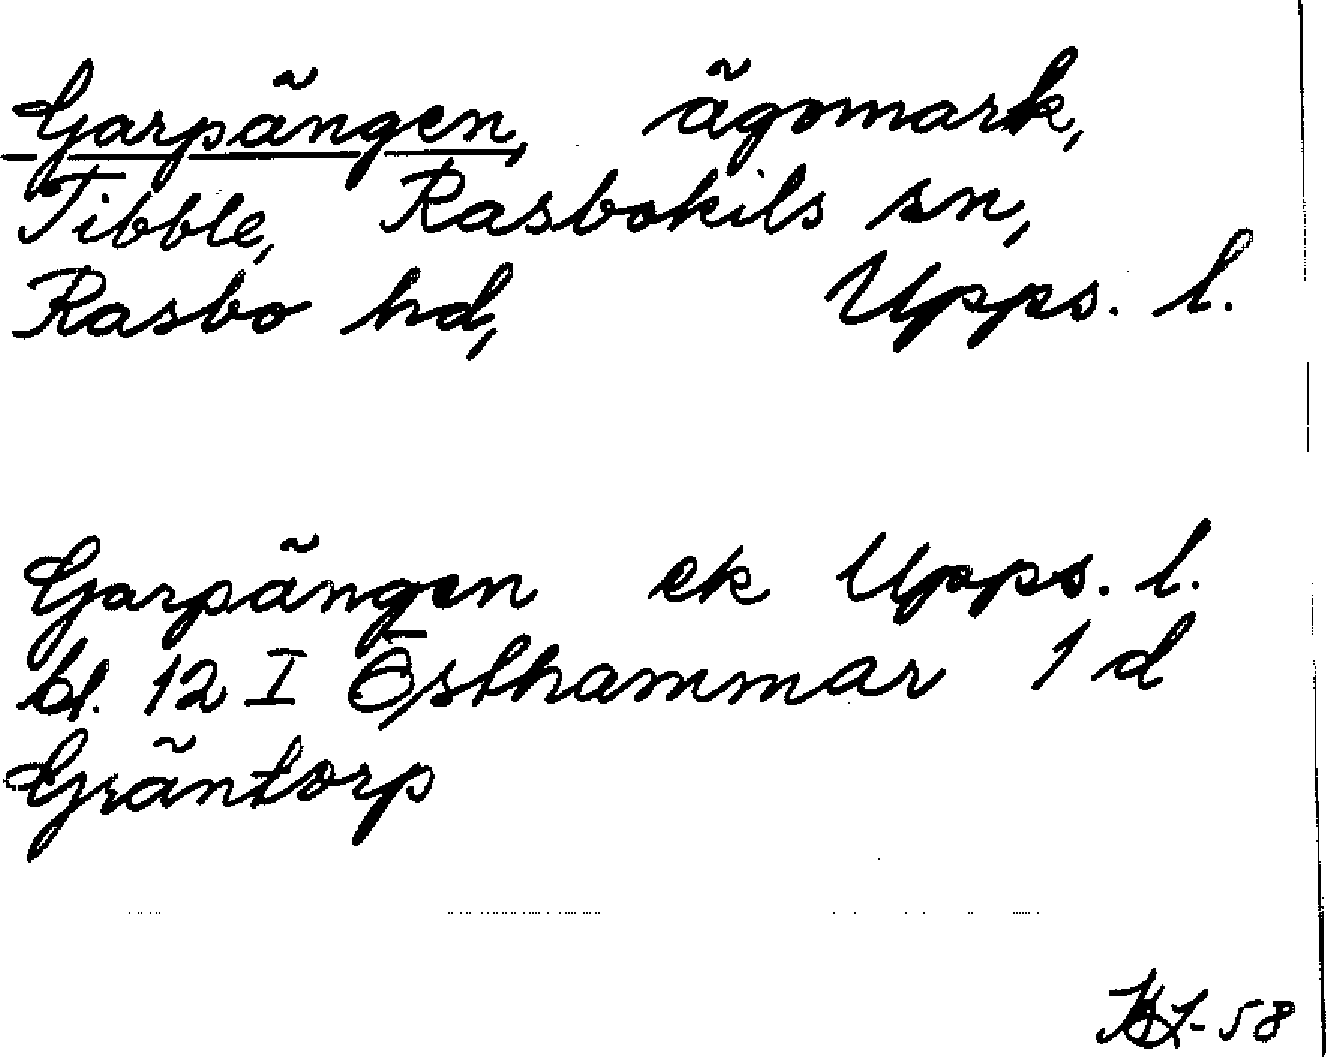 Garpängen, ägomark,
Tibble, Rasbokils sn,
Rasbo hd, Upps. l.
Garpängen ek Upps. l.
bl. 12 I Östhammar 1 d
Gräntorp
-58